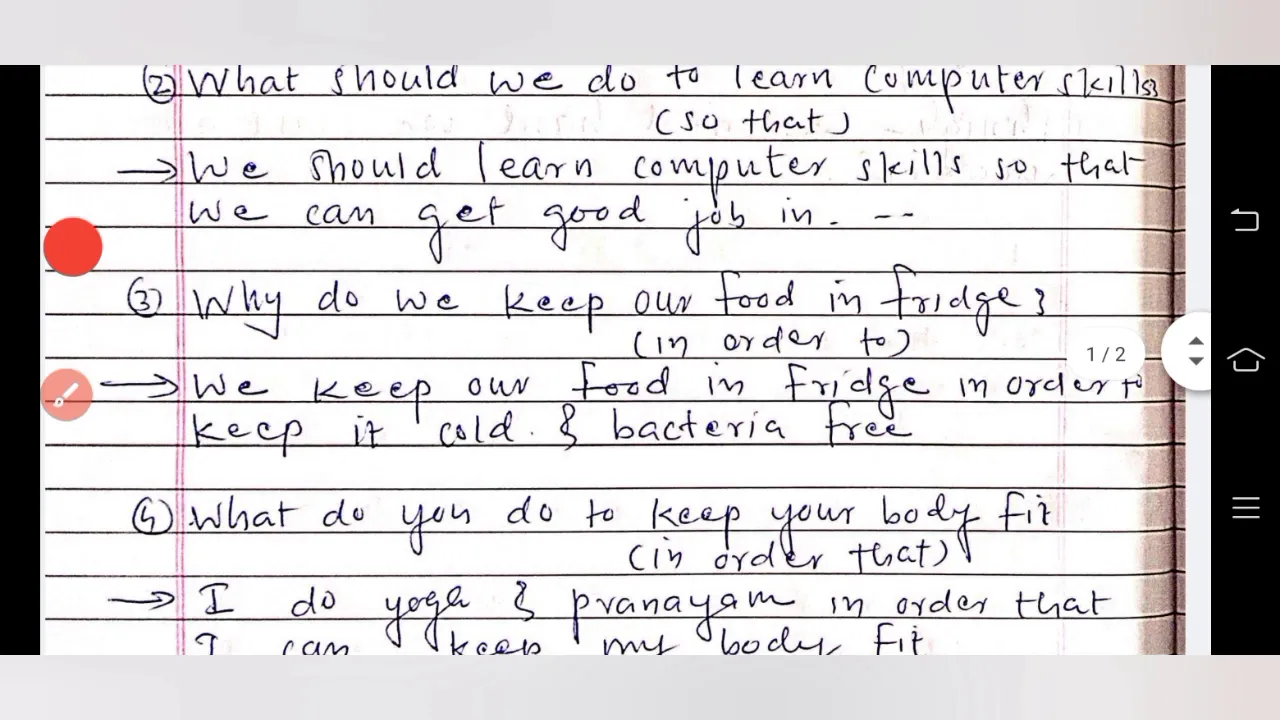 ② What should we do to learn computer skills?
(so that)
→ We should learn computer skills so that
we can get good job in. --
③ Why do we keep our food in fridge?
(in order to)
1/2
→ We keep our food in fridge in order to
keep it cold. & bacteria free
④ What do you do to keep your body fit
(in order that)
→ I do yoga & pranayam in order that
I can keep my body fit